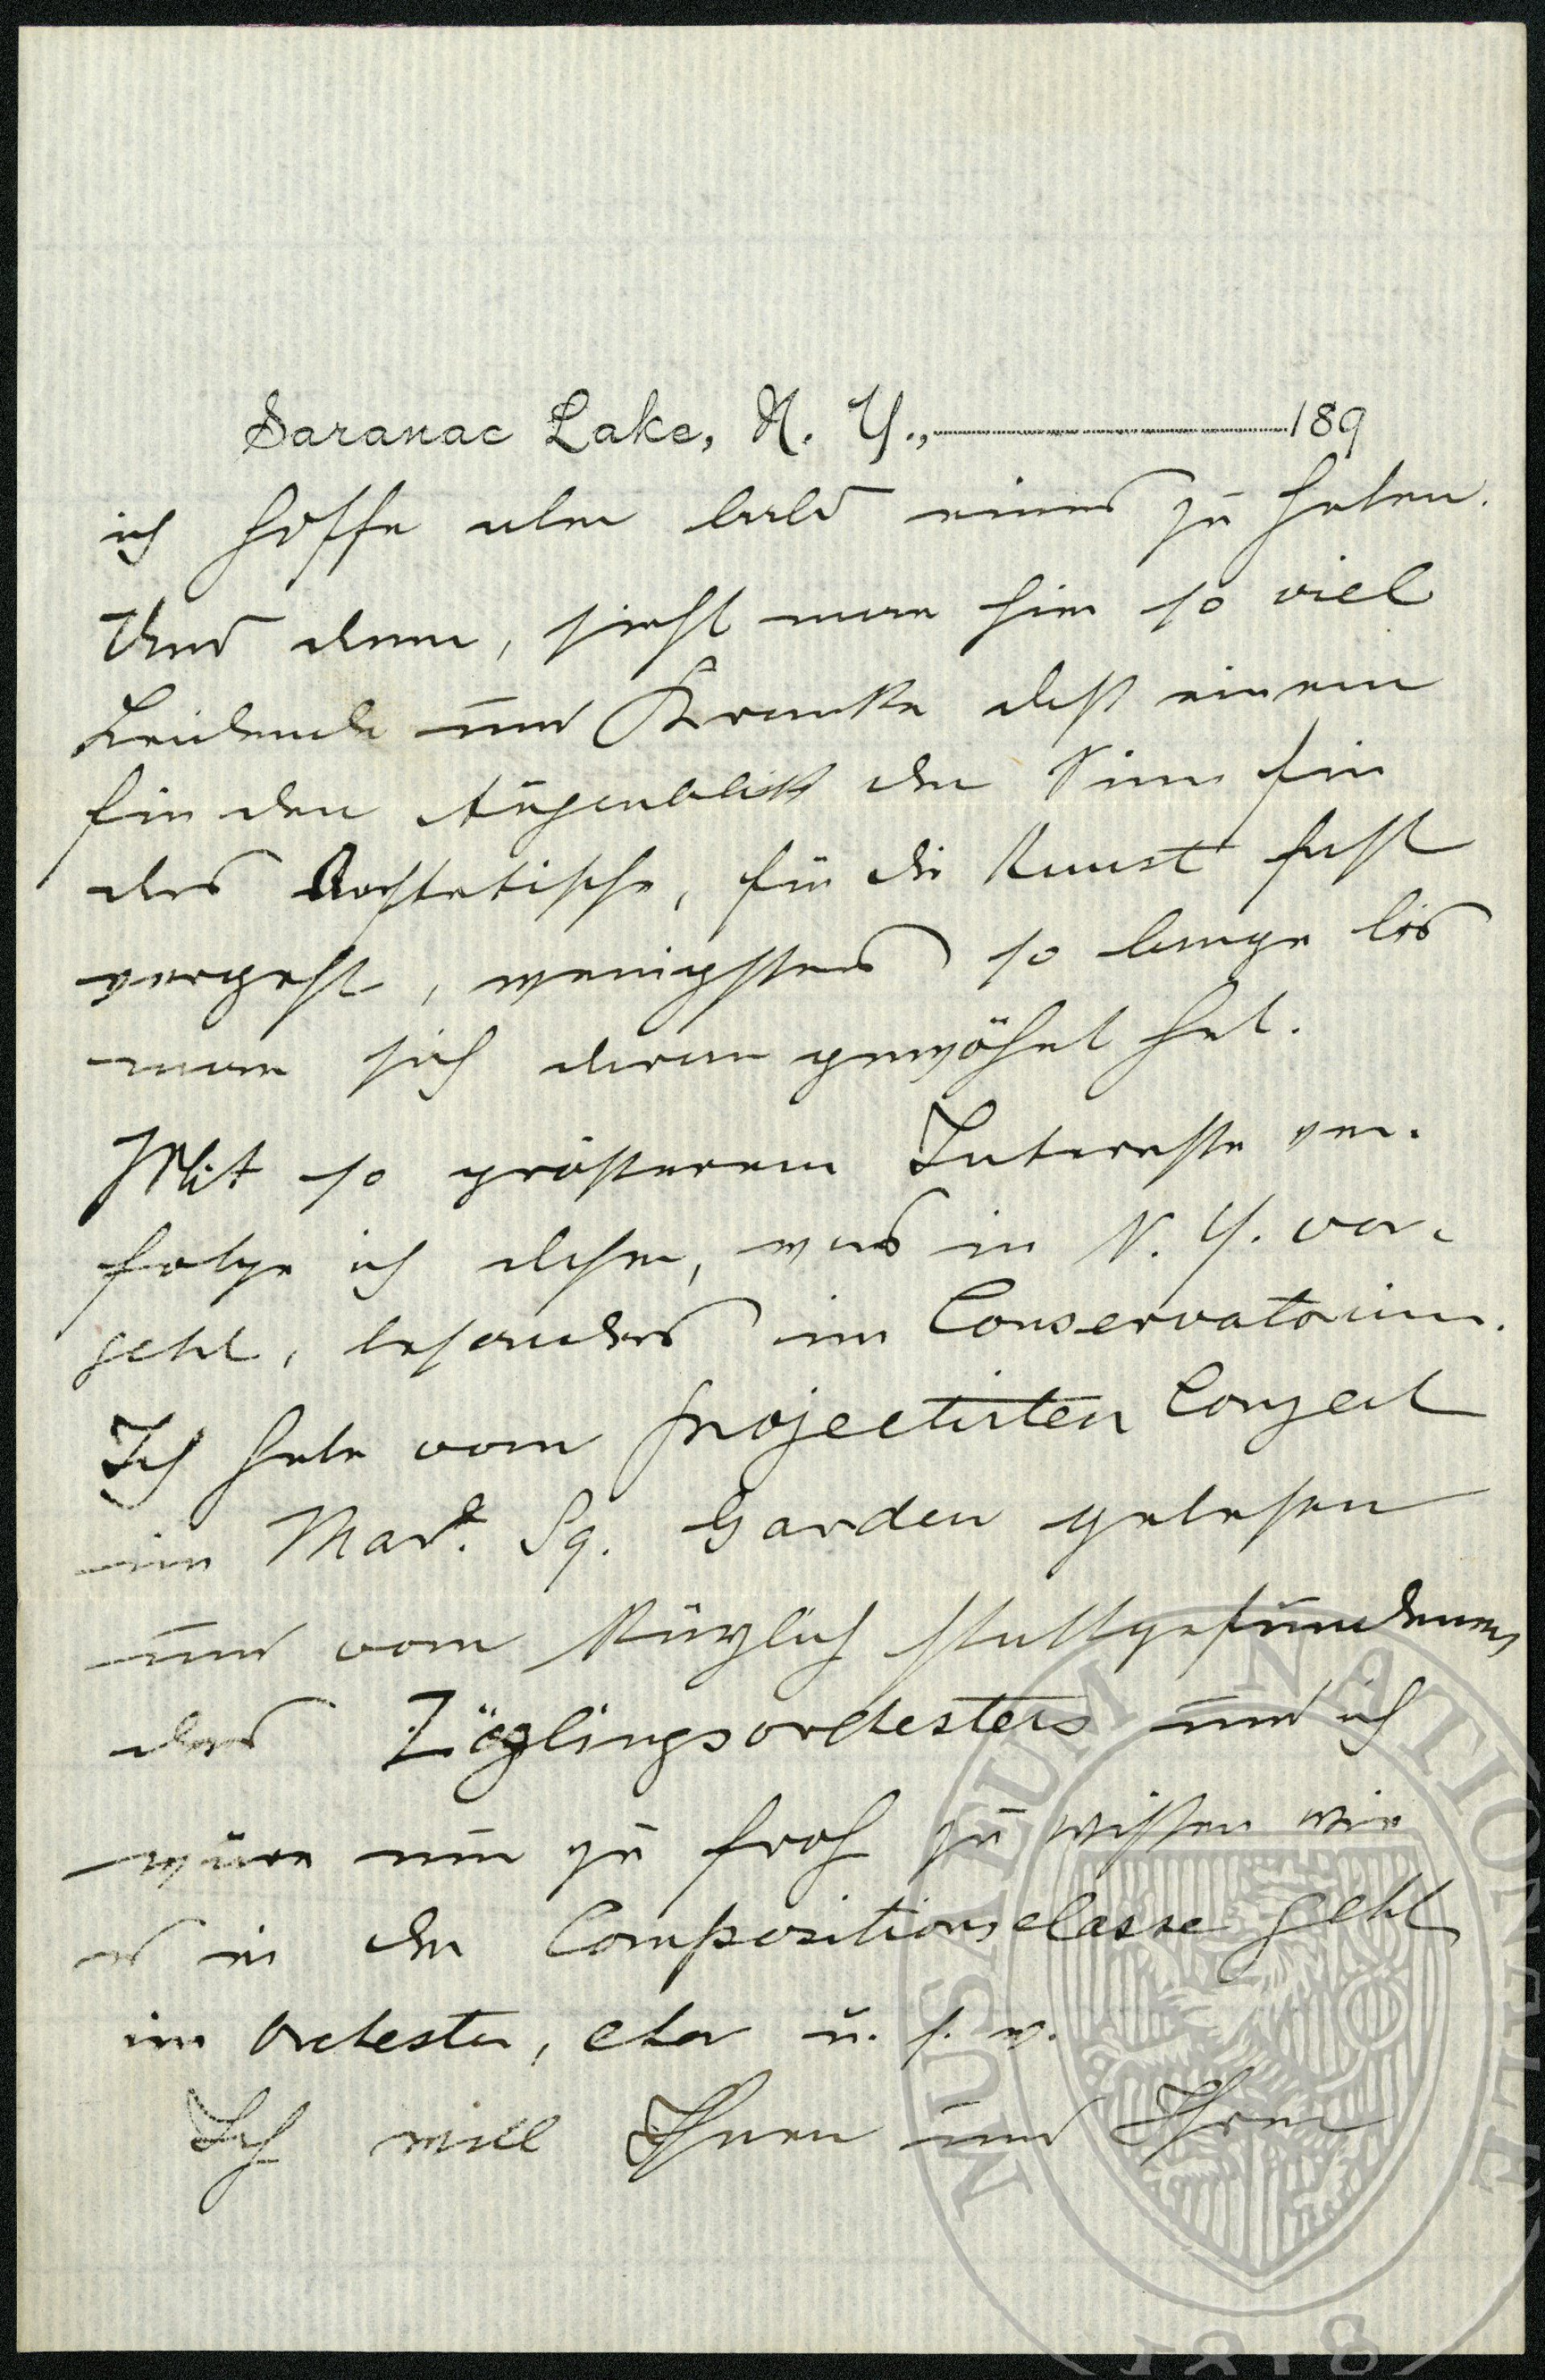 Saranac Lake, N. Y., 189
ich hoffe aber bald eines zu haben.
Und dann, sieht man hier so viel
Leidende und Kranke dass einem
für den Augenblick der Sinn für
das Aesthetische, für die Kunst fast
vergeht, wenigstens so lange bis
man sich daran gewöhnt hat.
Mit so grösserem Interesse ver-
folge ich aber, was in N. Y. vor-
geht, besonders im Conservatorium.
Ich habe vom projectirten Conzert
im Mad. Sq. Garden gelesen
und vom kürzlich stattgefundenen
des Zöglingsorchesters und ich
wäre nur zu froh zu wissen wie
es in der Compositionsclasse geht
im Orchester, Chor u. s. w.
Ich will Ihnen und Ihrer
MUSAEUM NATIONALE
1818